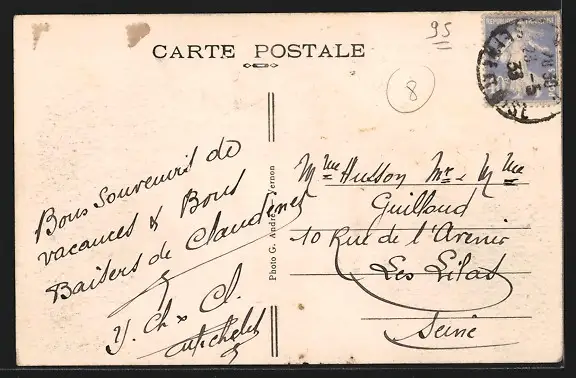 CARTE POSTALE
95
8
Bons Souvenirs de
vacances & Bons
Baisers de Claudine
Y. Ch x Cl.
Michelet
Photo G. André - Vernon
Mme Husson Mr & Mme
Guilloud
10 Rue de l'Avenir
Les Lilas
Seine